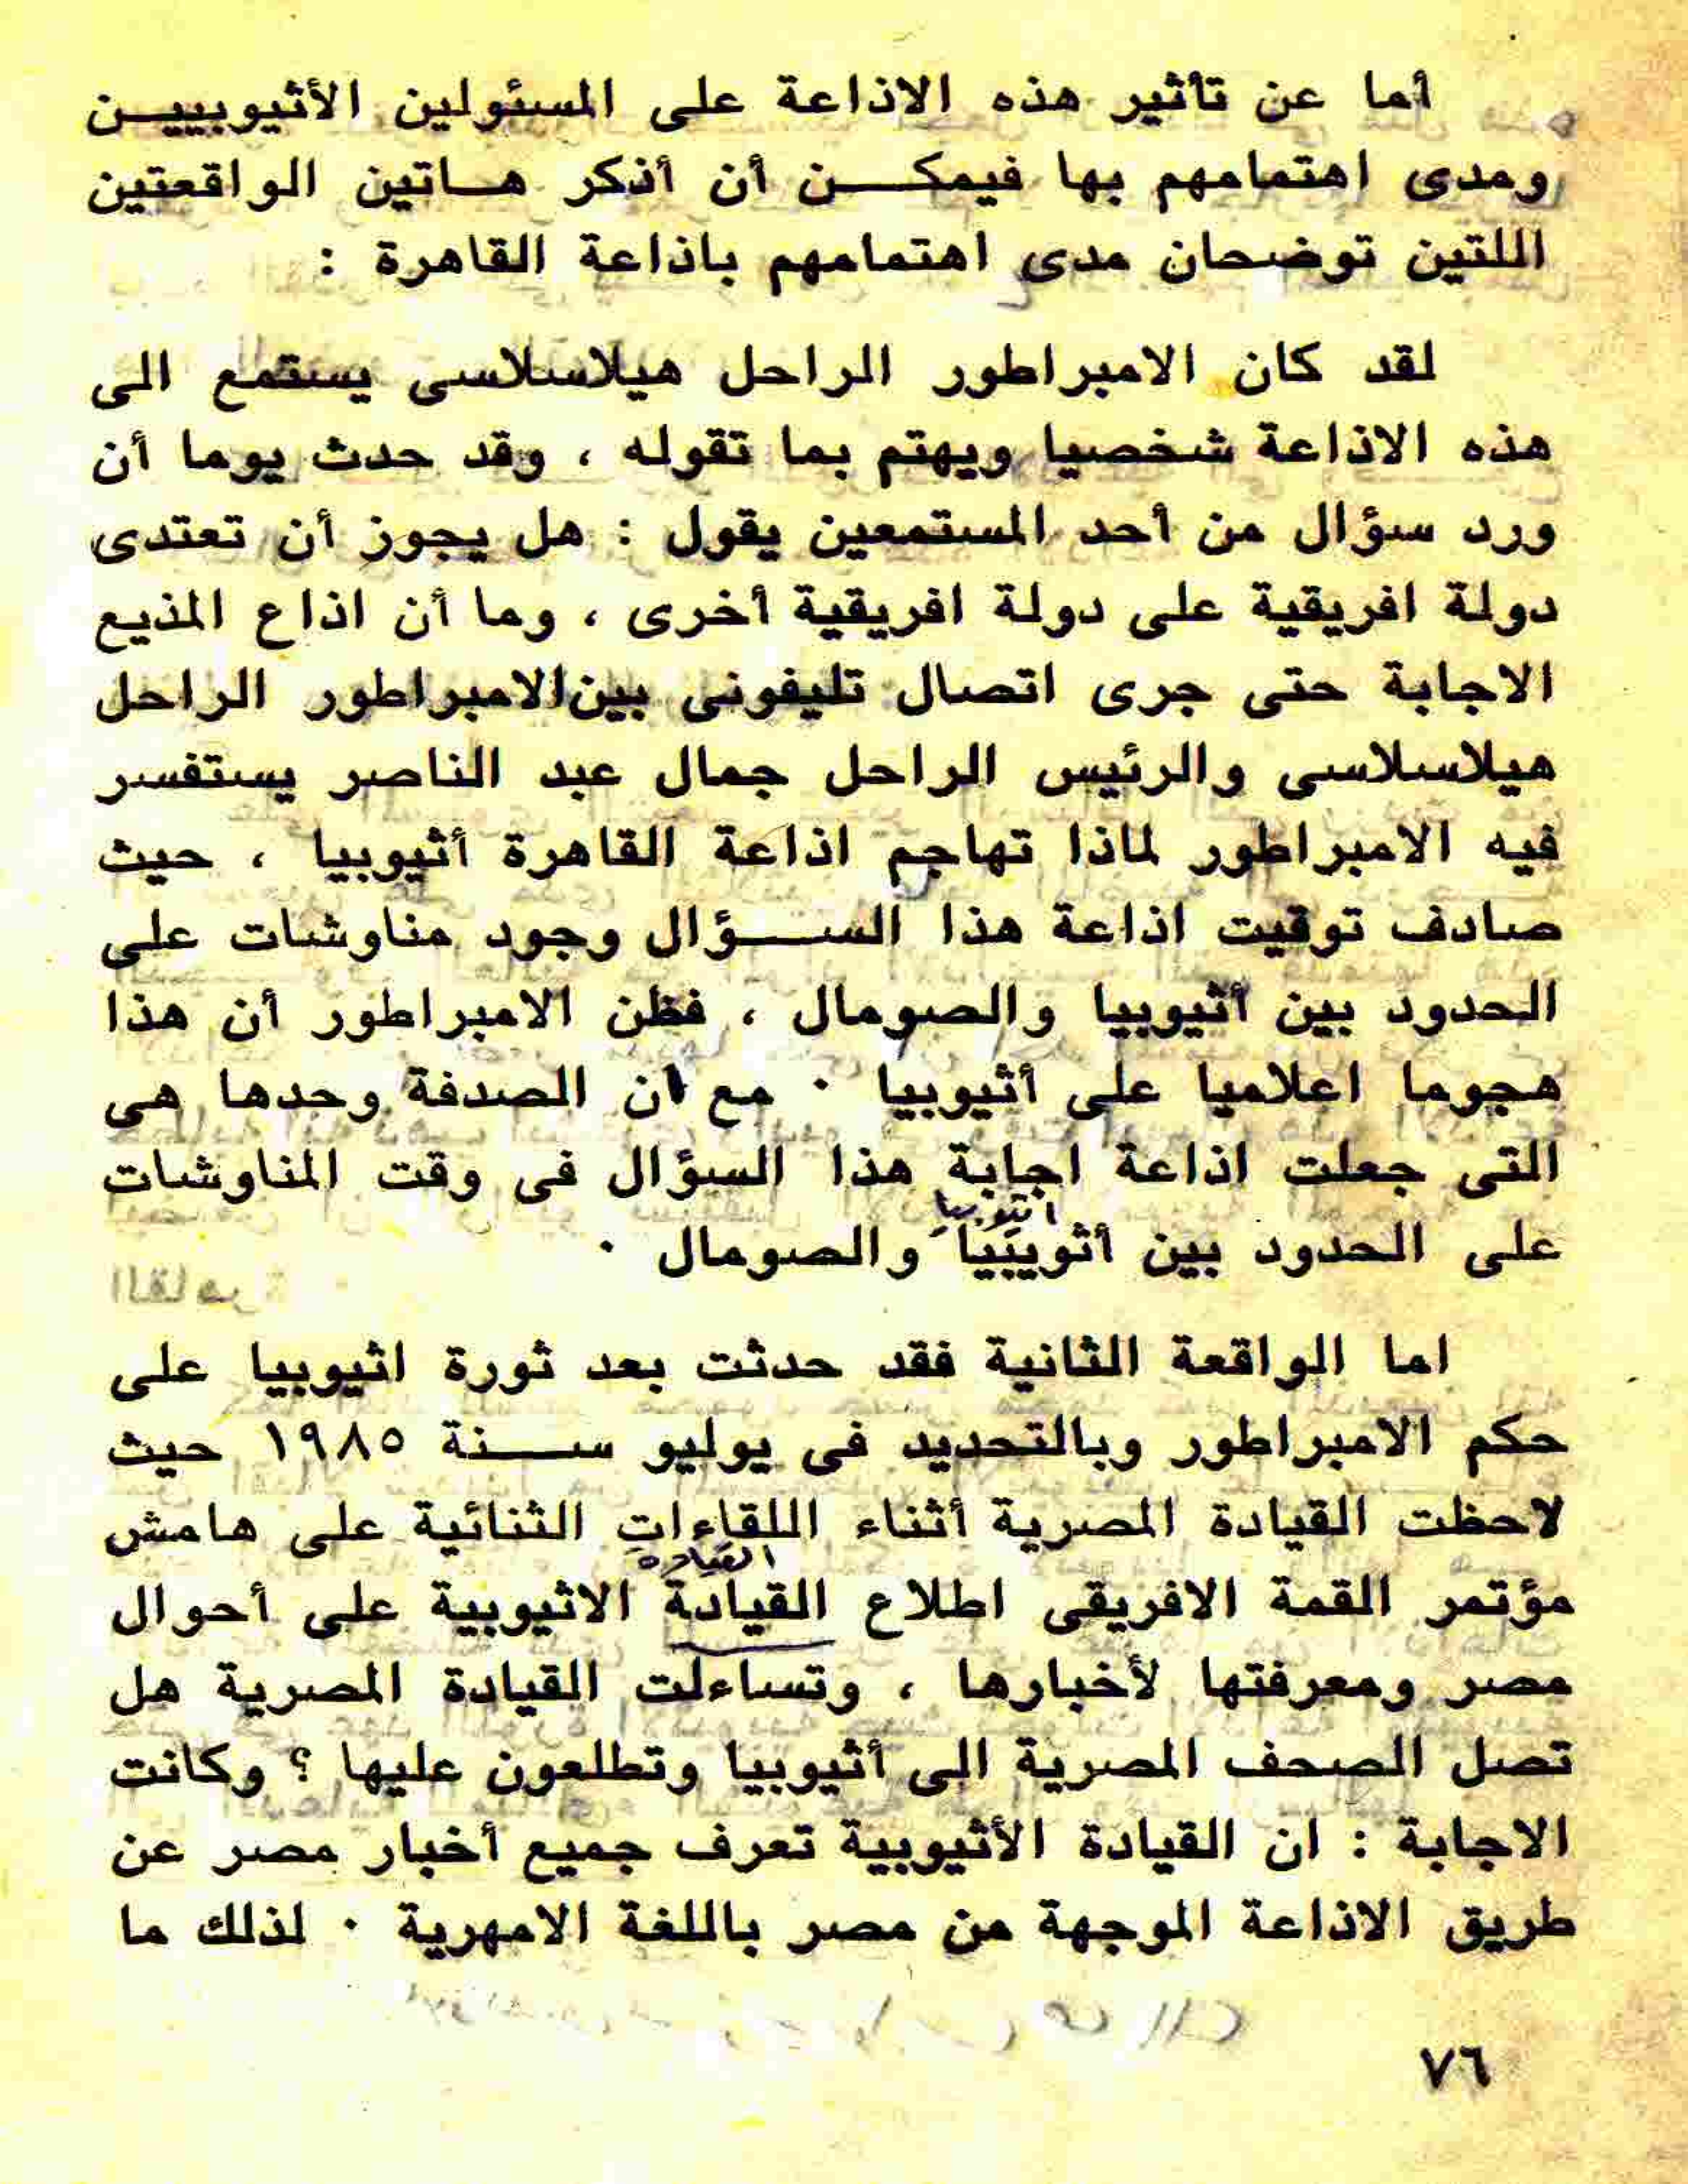 أما عن تأثير هذه الاذاعة على المسئولين الأثيوبيين
ومدى اهتمامهم بها فيمكن أن أذكر هاتين الواقعتين
اللتين توضحان مدى اهتمامهم باذاعة القاهرة :
لقد كان الامبراطور الراحل هيلاسلاسى يستمع الى
هذه الاذاعة شخصيا ويهتم بما تقوله ، وقد حدث يوما أن
ورد سؤال من أحد المستمعين يقول : هل يجوز أن تعتدى
دولة افريقية على دولة افريقية أخرى ، وما أن اذاع المذيع
الاجابة حتى جرى اتصال تليفونى بين الامبراطور الراحل
هيلاسلاسى والرئيس الراحل جمال عبد الناصر يستفسر
فيه الامبراطور لماذا تهاجم اذاعة القاهرة أثيوبيا ، حيث
صادف توقيت اذاعة هذا السؤال وجود مناوشات على
الحدود بين أثيوبيا والصومال ، فظن الامبراطور أن هذا
هجوما اعلاميا على أثيوبيا . مع ان الصدفة وحدها هى
التى جعلت اذاعة اجابة هذا السؤال فى وقت المناوشات
اثيوبيا
على الحدود بين أثويبيا والصومال .
اما الواقعة الثانية فقد حدثت بعد ثورة اثيوبيا على
حكم الامبراطور وبالتحديد فى يوليو سنة ١٩٨٥ حيث
لاحظت القيادة المصرية أثناء اللقاءات الثنائية على هامش
القيادة
مؤتمر القمة الافريقى اطلاع القيادة الاثيوبية على أحوال
مصر ومعرفتها لأخبارها ، وتساءلت القيادة المصرية هل
تصل الصحف المصرية الى أثيوبيا وتطلعون عليها ؟ وكانت
الاجابة : ان القيادة الأثيوبية تعرف جميع أخبار مصر عن
طريق الاذاعة الموجهة من مصر باللغة الامهرية . لذلك ما
٧٦